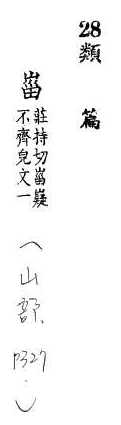 28 類篇
莊持切
嶷
不齊皃文一
(山部, P327.)